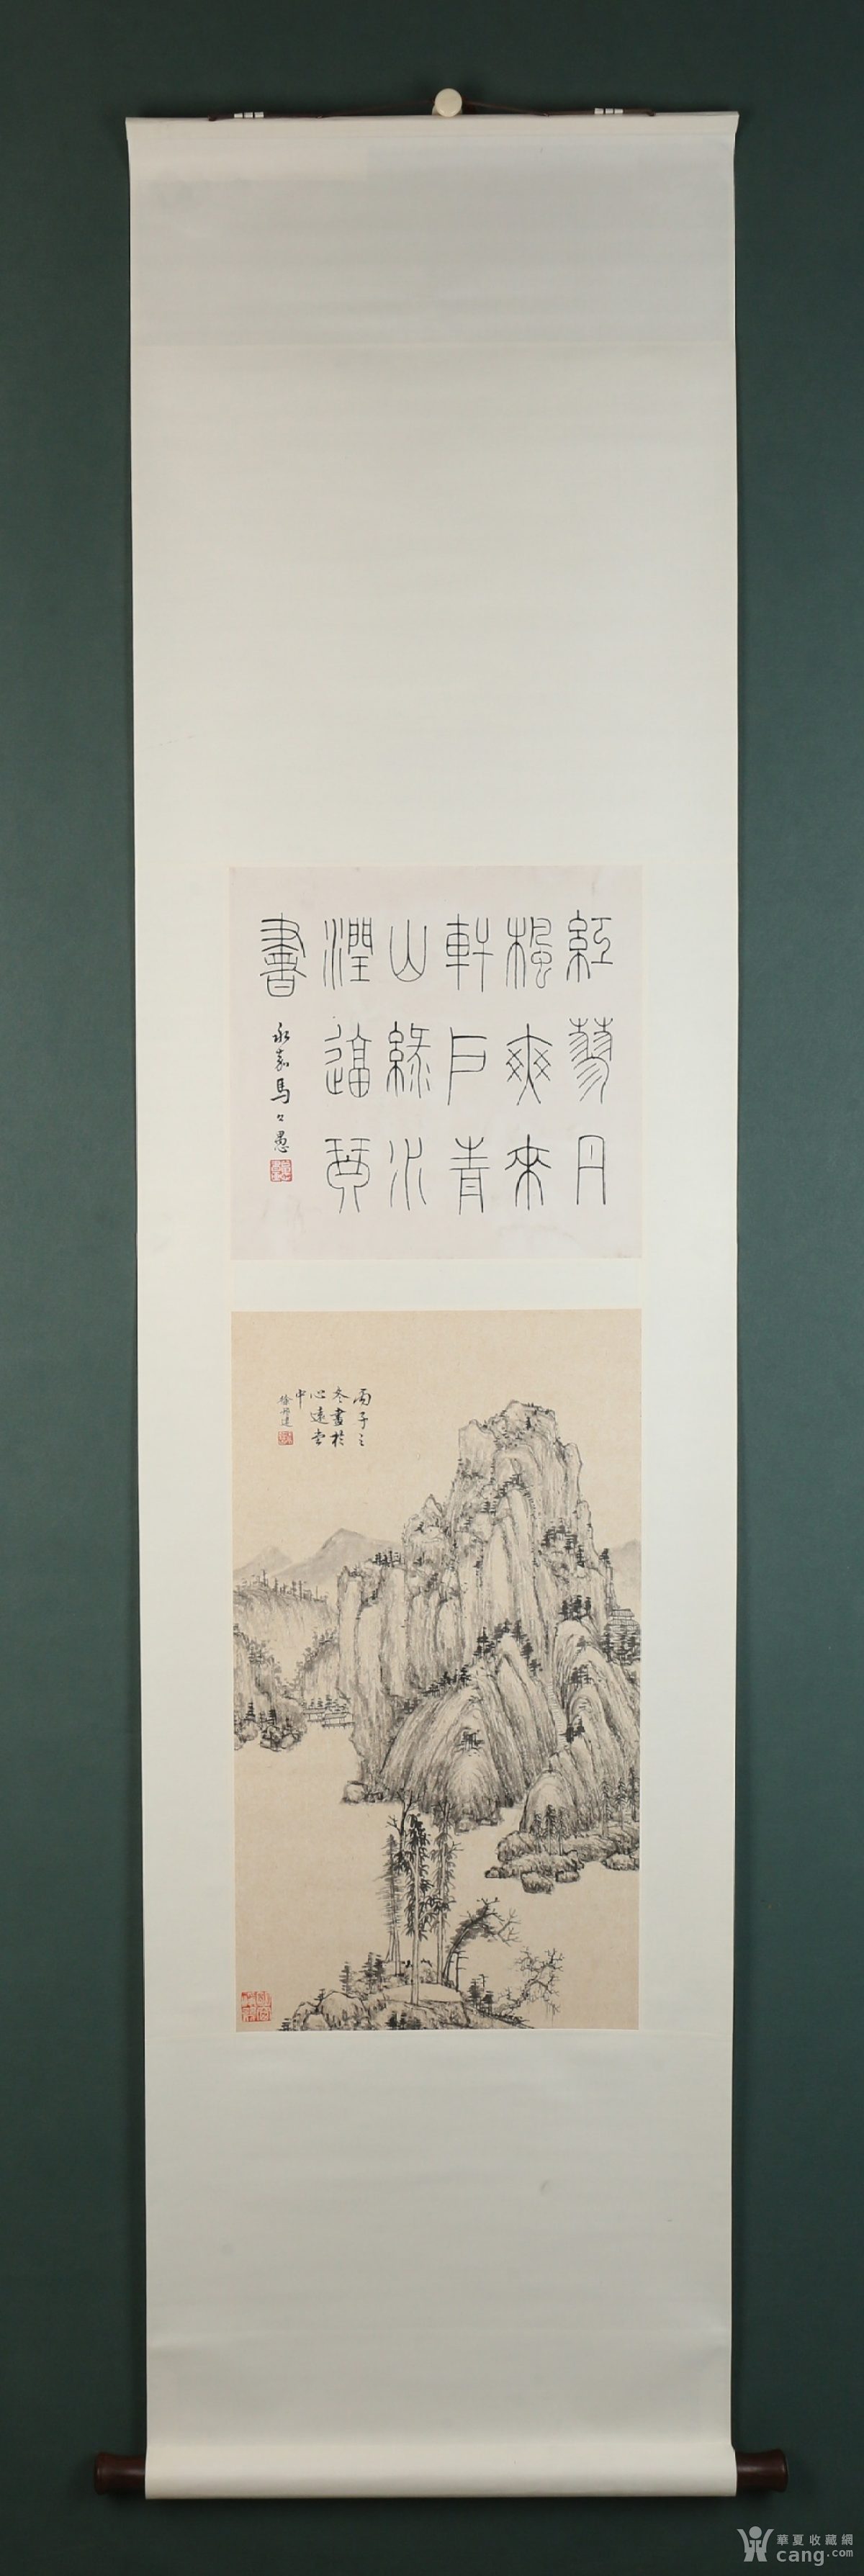 紅蓼丹
楓爽來
軒戶青
山綠水
潤逼琴
書
永嘉馬公愚
丙子之
冬畫於
心遠堂
中
徐邦達
華夏收藏網
cang.com